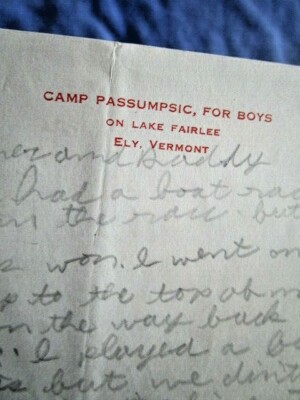 CAMP PASSUMPSIC, FOR BOYS
ON LAKE FAIRLEE
ELY, VERMONT
her and Daddy
had a boat rac
en the rase but
won. I went on
p to the top of m
n the way back
I played a ba
s but we dint